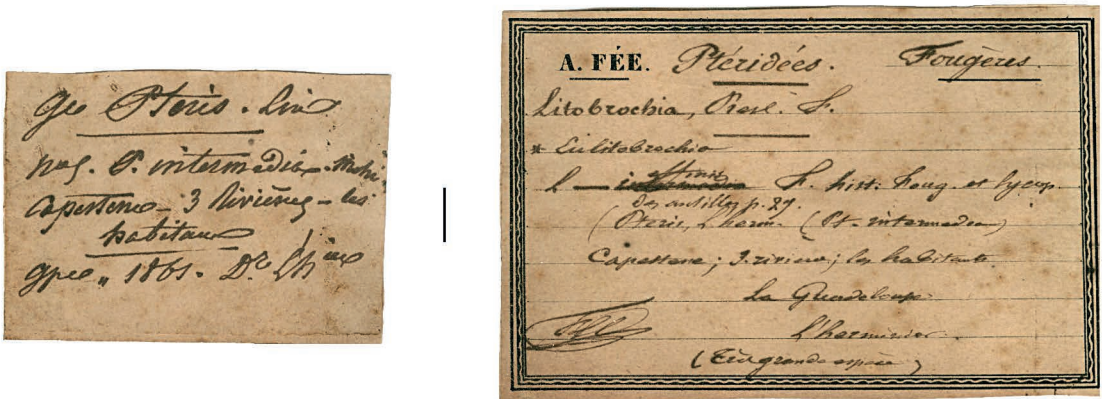 Ge Pteris. Lin
n°5. P. intermedia. mihi
Capesterre - 3 Rivières - les
habitaux
gpee " 1861. Dr. Lh
A. FÉE. Ptéridées. Fougères.
Litobrochia, Presl. F.
* Eulitobrochia
L — affinis F. hist. Foug. et lycop
des antilles p. 29.
(Pteris, Lherm. (Pt. intermedia)
Capesterre; 3. rivieres; les habitants
La Guadeloupe
L'herminier
(Très grande espèce)